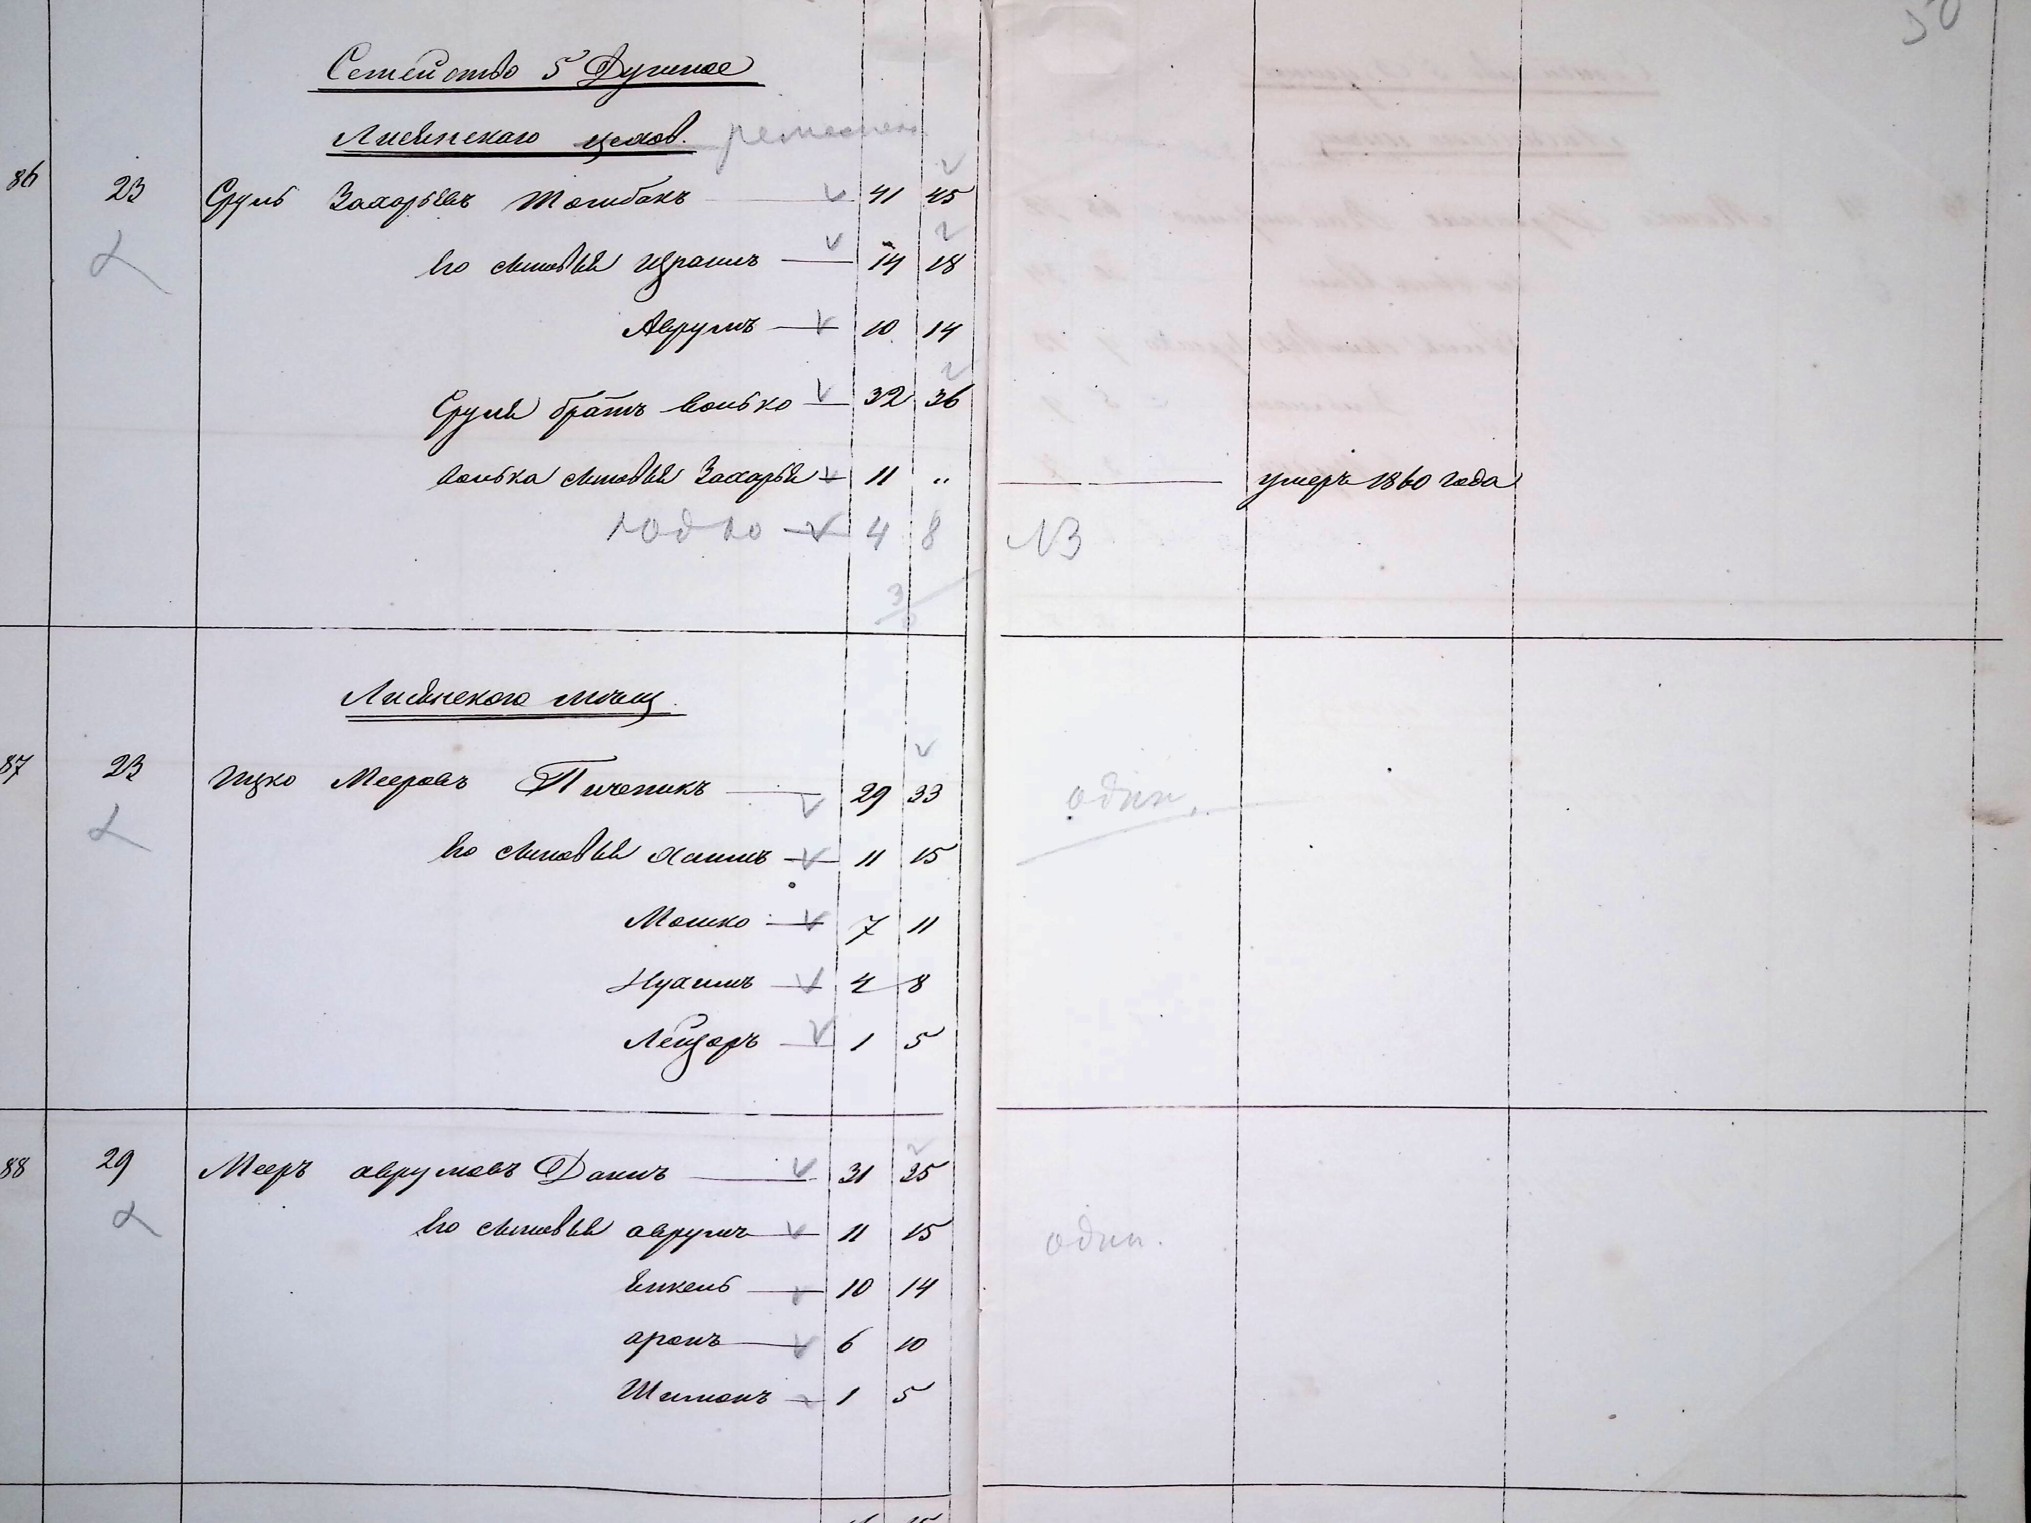 50
Семейство 5 Душное
Лисянскаго цехов. ремеслен
86 23 Сруль Захарьевъ 41 45
Его сыновья Израиль 14 18
Аврумъ 10 14
Сруля братъ Волько 32 36
Волька сыновья Захарья 11 " умеръ 1860 года
Юдко 4 8 NB
3
Лисянскаго мѣщ.
87 23 Ицко Мееровъ Пиченикъ 29 33 один.
Его сыновья Хаимъ 11 15
Мошко 7 11
Нухимъ 4 8
Лейзоръ 1 5
88 29 Мееръ Аврумовъ 31 25
Его сыновья Аврумъ 11 15 один.
Янкель 10 14
Аронъ 6 10
Шимонъ 1 5